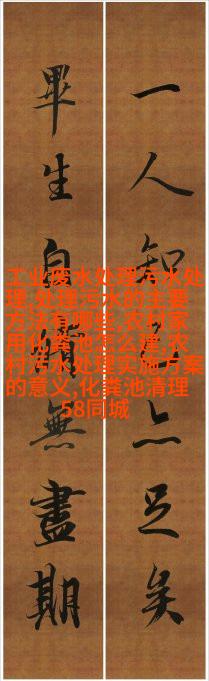 一人知亦足矣
畢生自無盡期
工业废水处理污水处
理,处理污水的主要
方法有哪些,农村家
用化粪池怎么埋,农
村污水处理实施方案
的意义,化粪池清理
58同城